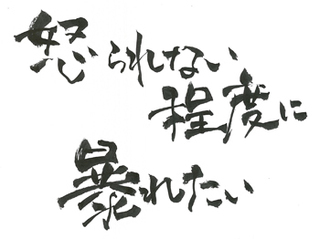 怒られない
程度に
暴れたい